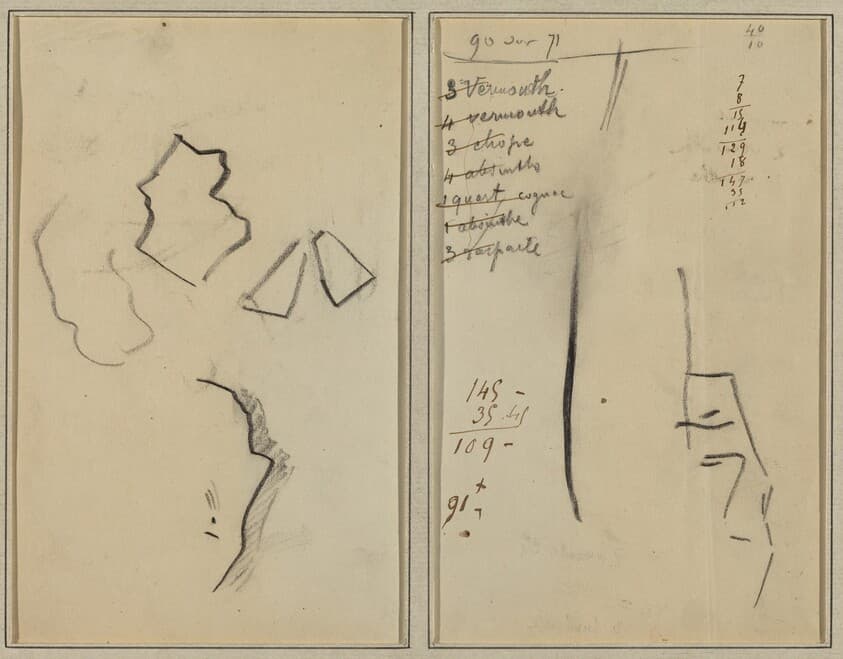 90 sur 71
3 Vermouth.
4 vermouth
3 chope
4 absinths
1 quart cognac
1 absinthe
3
40
10
7
8
15
114
129
18
147
35
112
145 -
35.45
109 -
91 +
7